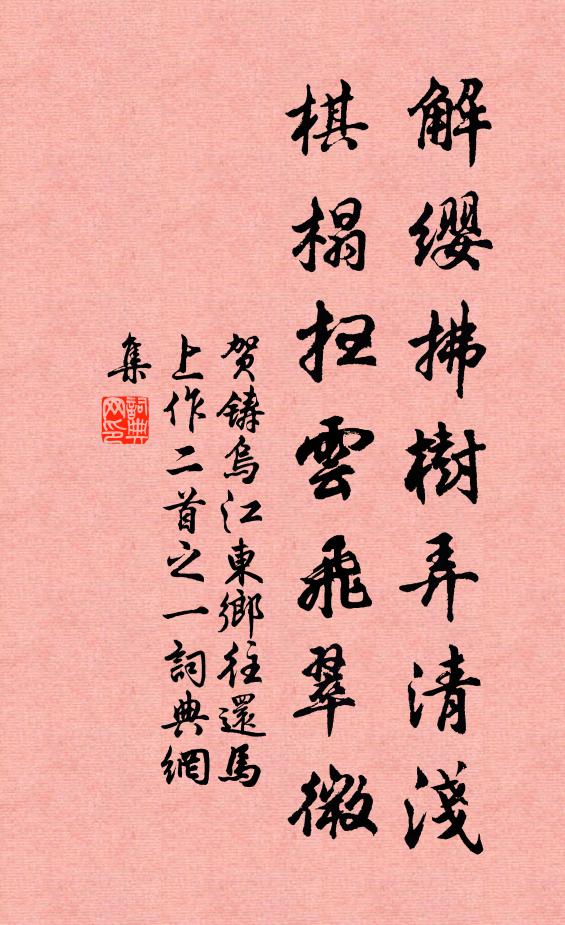 解纓拂樹弄清淺
棋榻掃雲飛翠微
賀鑄烏江東鄉往還馬
上作二首之一詞典網
集
詞典網印